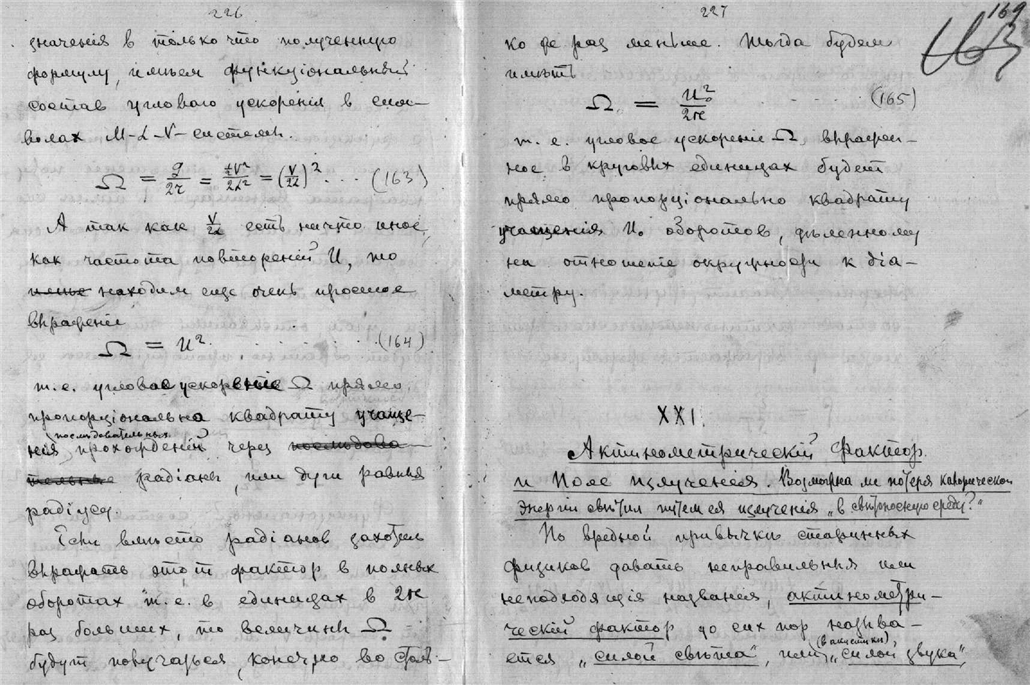 226
значенія в только что полученную
формулу, имѣем функціональный
состав угловаго ускоренія в сим-
волах M-L-V-системы.
Ω = g/2r = LV²/2L² = (V/2L)² ... (163)
А так как V/2L есть ничто иное,
как частота повтореній U, то
находим еще очень простое
выраженіе
Ω = U² ... (164)
т.е. угловое ускореніе Ω прямо
пропорціонально квадрату учаще-
нія последовательных прохожденій через
радіаны, или дуги равныя
радіусу.
Если вмѣсто радіанов захотѣм
выражать этот фактор в полных
оборотах т.е. в единицах в 2π
раз больших, то величины Ω
будут получаться, конечно во столь-
227
169
ко же раз меньше. Тогда будем
имѣть
Ω₀ = U₀²/2π ... (165)
т.е. угловое ускореніе Ω выражен-
ное в круговых единицах будет
прямо пропорціонально квадрату
учащенія U₀ оборотов, дѣленному
на отношеніе окружности к діа-
метру.
XXI.
Актинометрическій фактор
и Поле излученія. Возможна ли потеря калорической
энергіи свѣтил путем ея излученія „в свѣтоносную среду?“
По вредной привычкѣ старинных
физиков давать неправильныя или
неподходящія названія, актинометри-
ческій фактор до сих пор называ-
ется „силой свѣта“, или (в акустикѣ) „силой звука“,